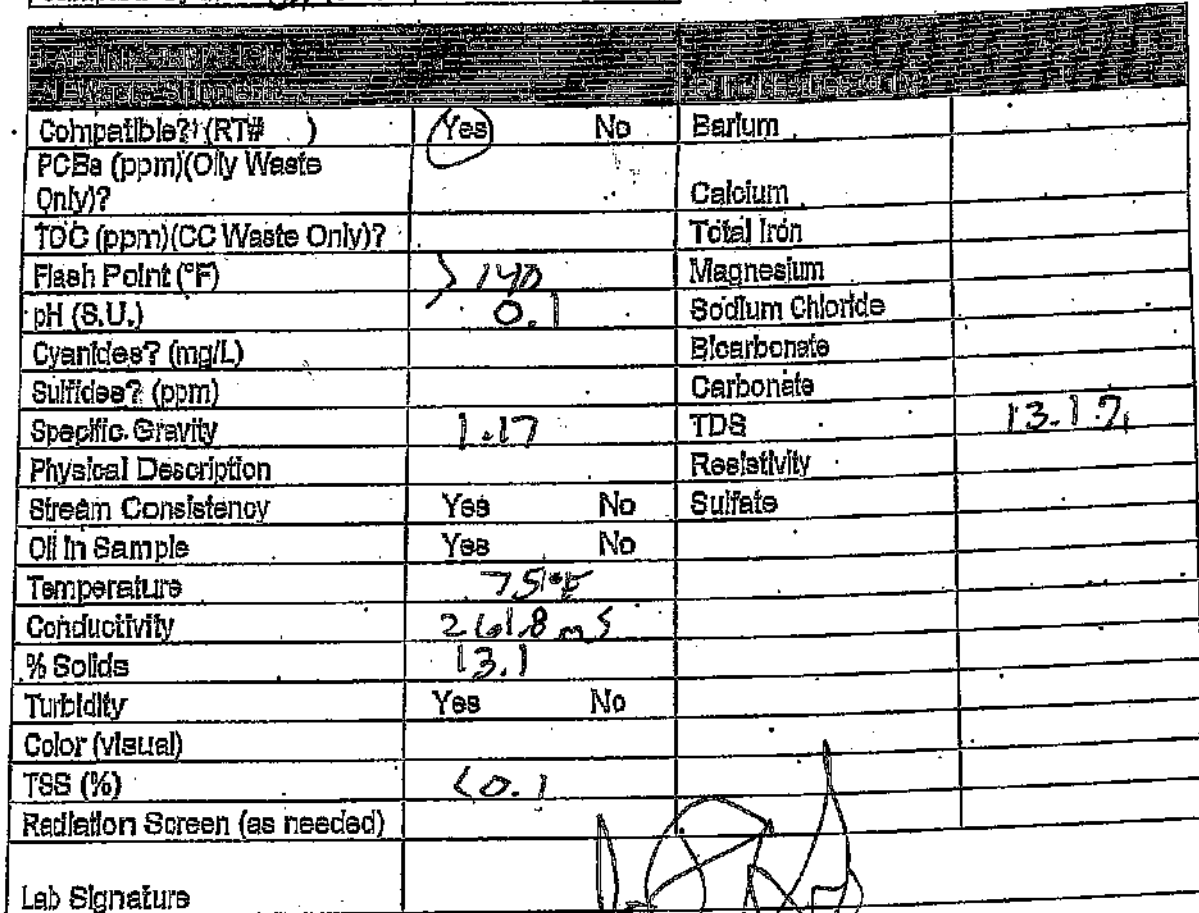 LAB INFORMATION
All Waste Shipments
Compatible? (RT# ) Yes No Barium
PCBs (ppm)(Oily Waste
Only)? Calcium
TOC (ppm)(CC Waste Only)? Total Iron
Flash Point (°F) > 140 Magnesium
pH (S.U.) 0.1 Sodium Chloride
Cyanides? (mg/L) Bicarbonate
Sulfides? (ppm) Carbonate
Specific Gravity 1.17 TDS 13.1%
Physical Description Resistivity
Stream Consistency Yes No Sulfate
Oil in Sample Yes No
Temperature 75°F
Conductivity 261.8 mS
% Solids 13.1
Turbidity Yes No
Color (visual)
TSS (%) <0.1
Radiation Screen (as needed)
Lab Signature